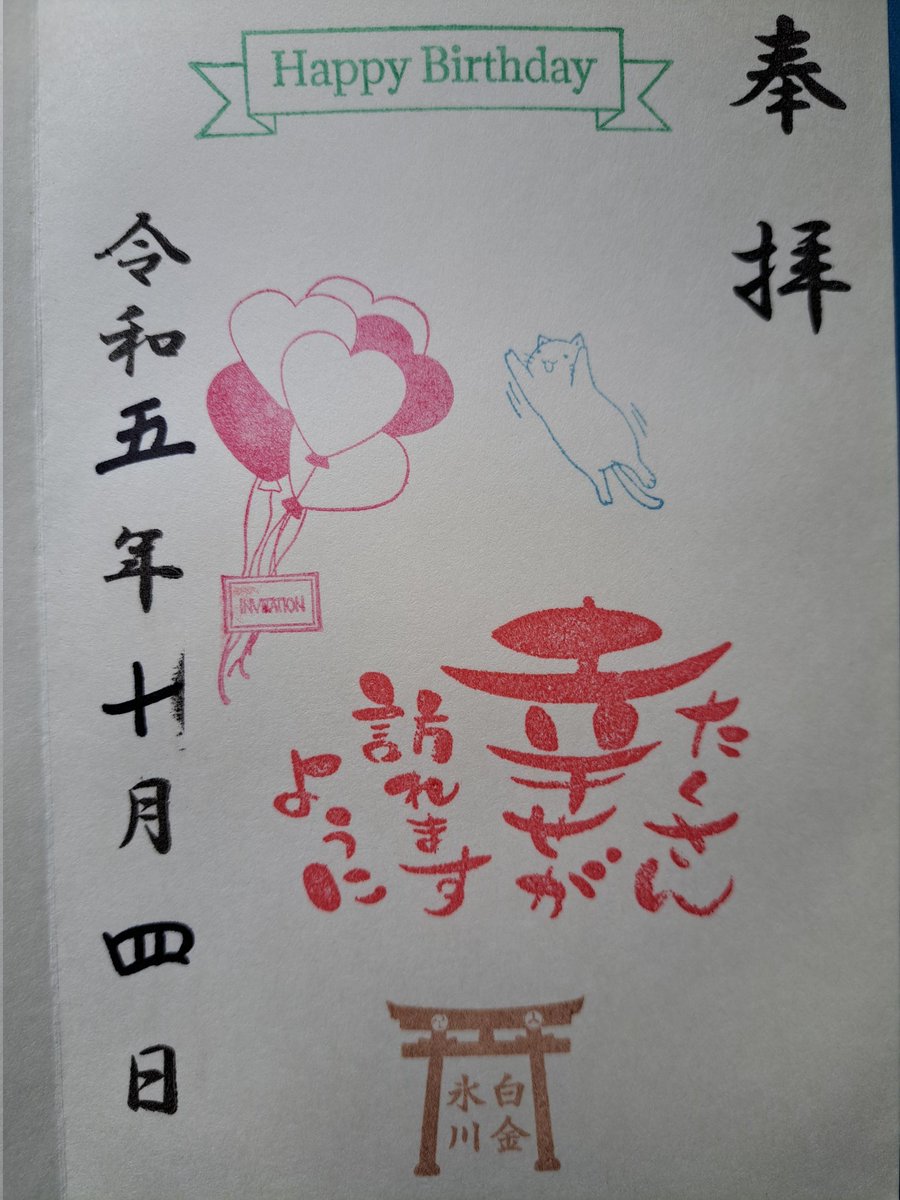 Happy Birthday
奉拝
たくさん
幸せが
訪れます
ように
INVITATION
白金
氷川
令和五年十月四日